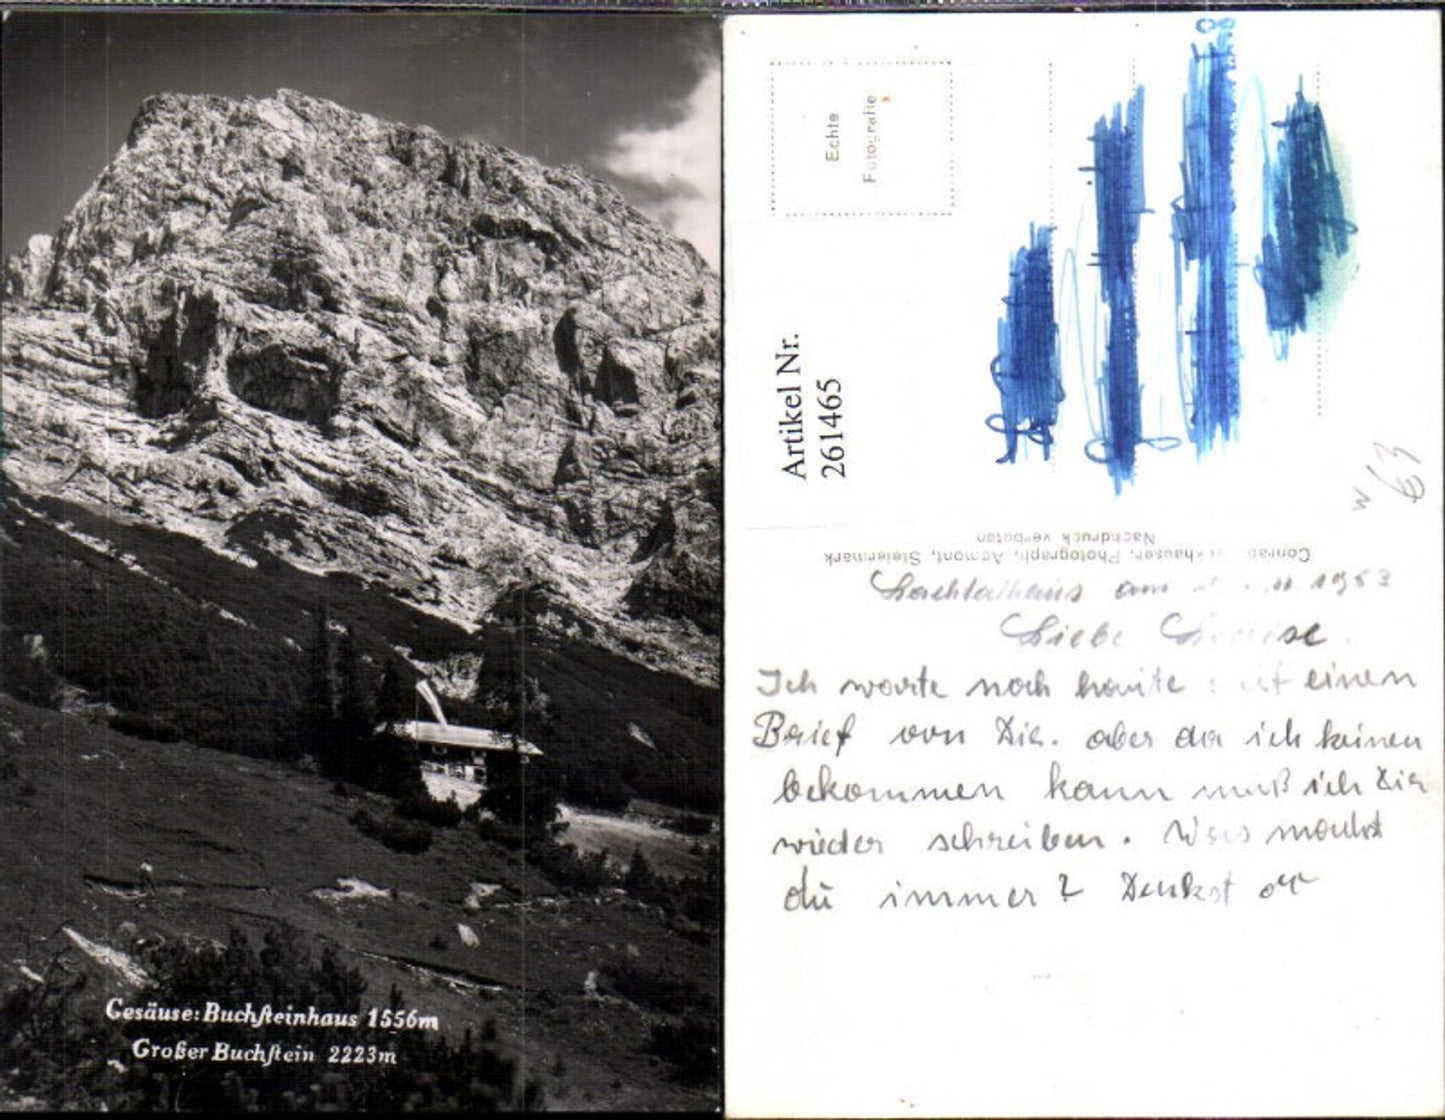 Gesäuse: Buchsteinhaus 1556m
Großer Buchstein 2223m
Echte
Fotografie
Artikel Nr.
261465
W 63
Conrad Fankhauser, Photograph, Admont, Steiermark
Nachdruck verboten
am 11. 1963
Liebe
Ich warte noch heute auf einen
Brief von Dir. aber da ich keinen
bekommen kann muß ich Dir
wieder schreiben. Was machst
du immer? Denkst